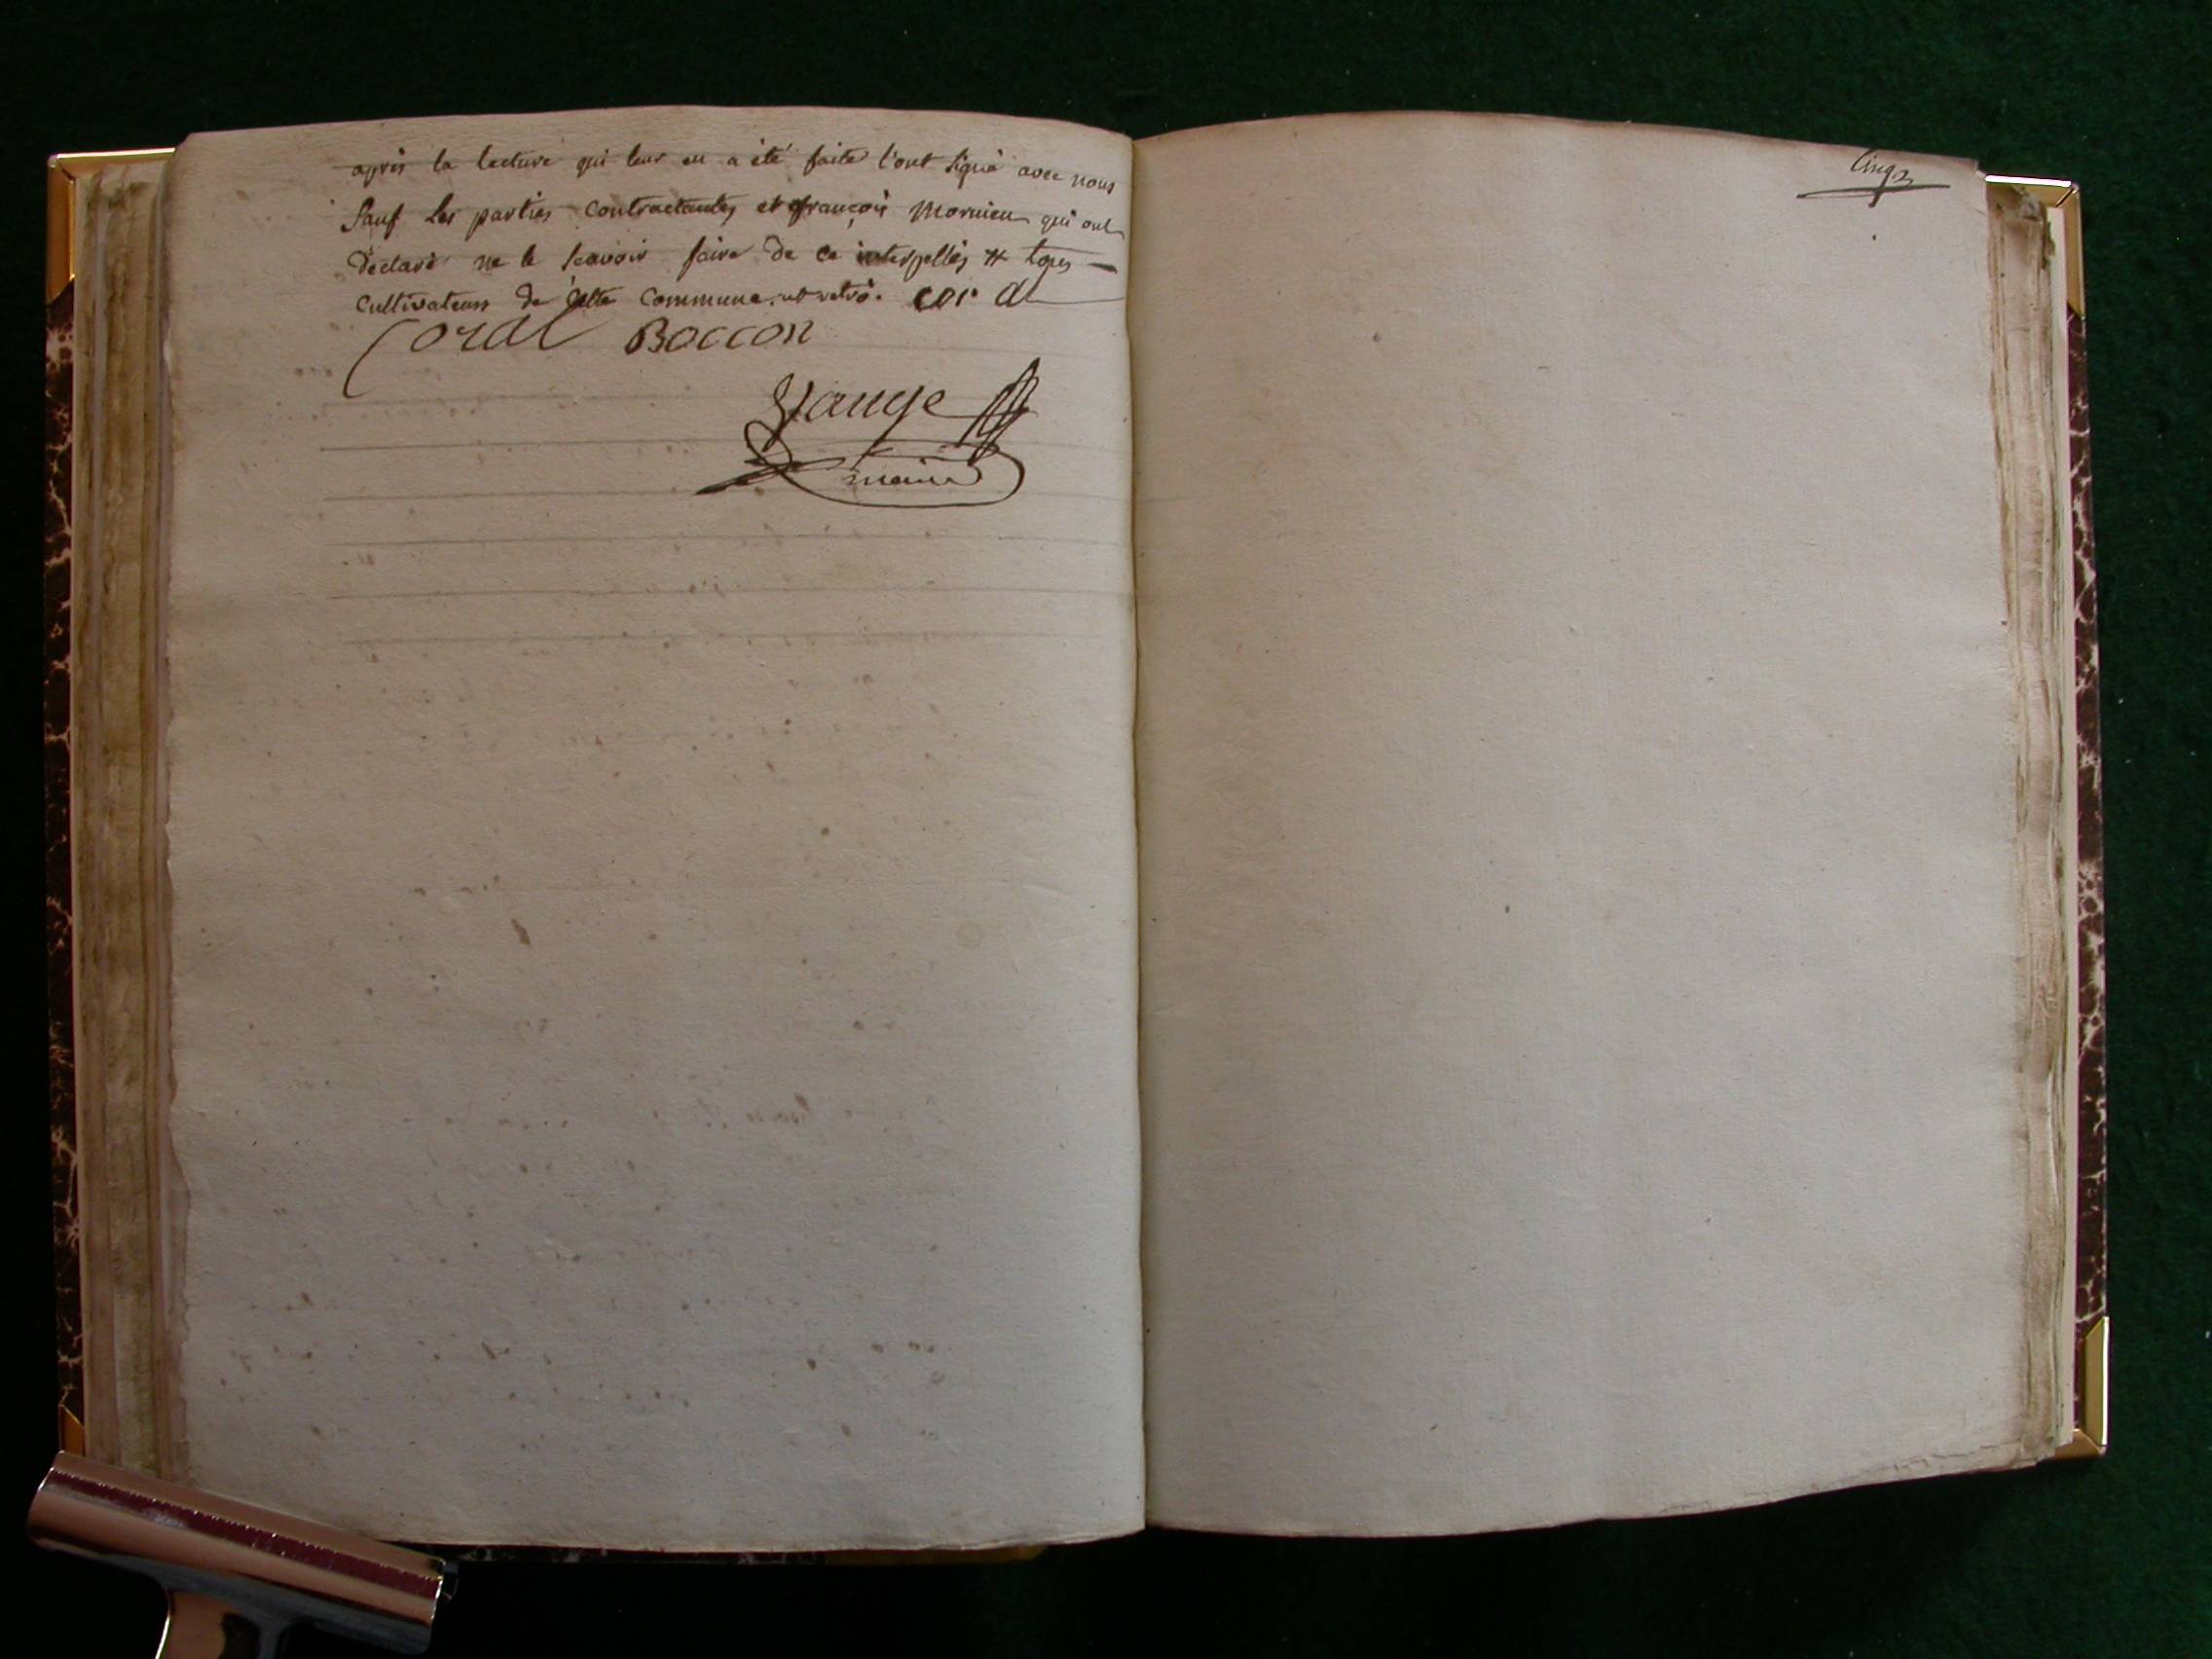 après la lecture qui leur en a été faite l'ont signé avec nous
sauf les parties contractantes et françois Mornieu qui ont
déclaré ne le scavoir faire de ce interpellés # tous
cultivateurs de cette commune. ut retrò. cor al
Coral Boccon
maire
Cinq